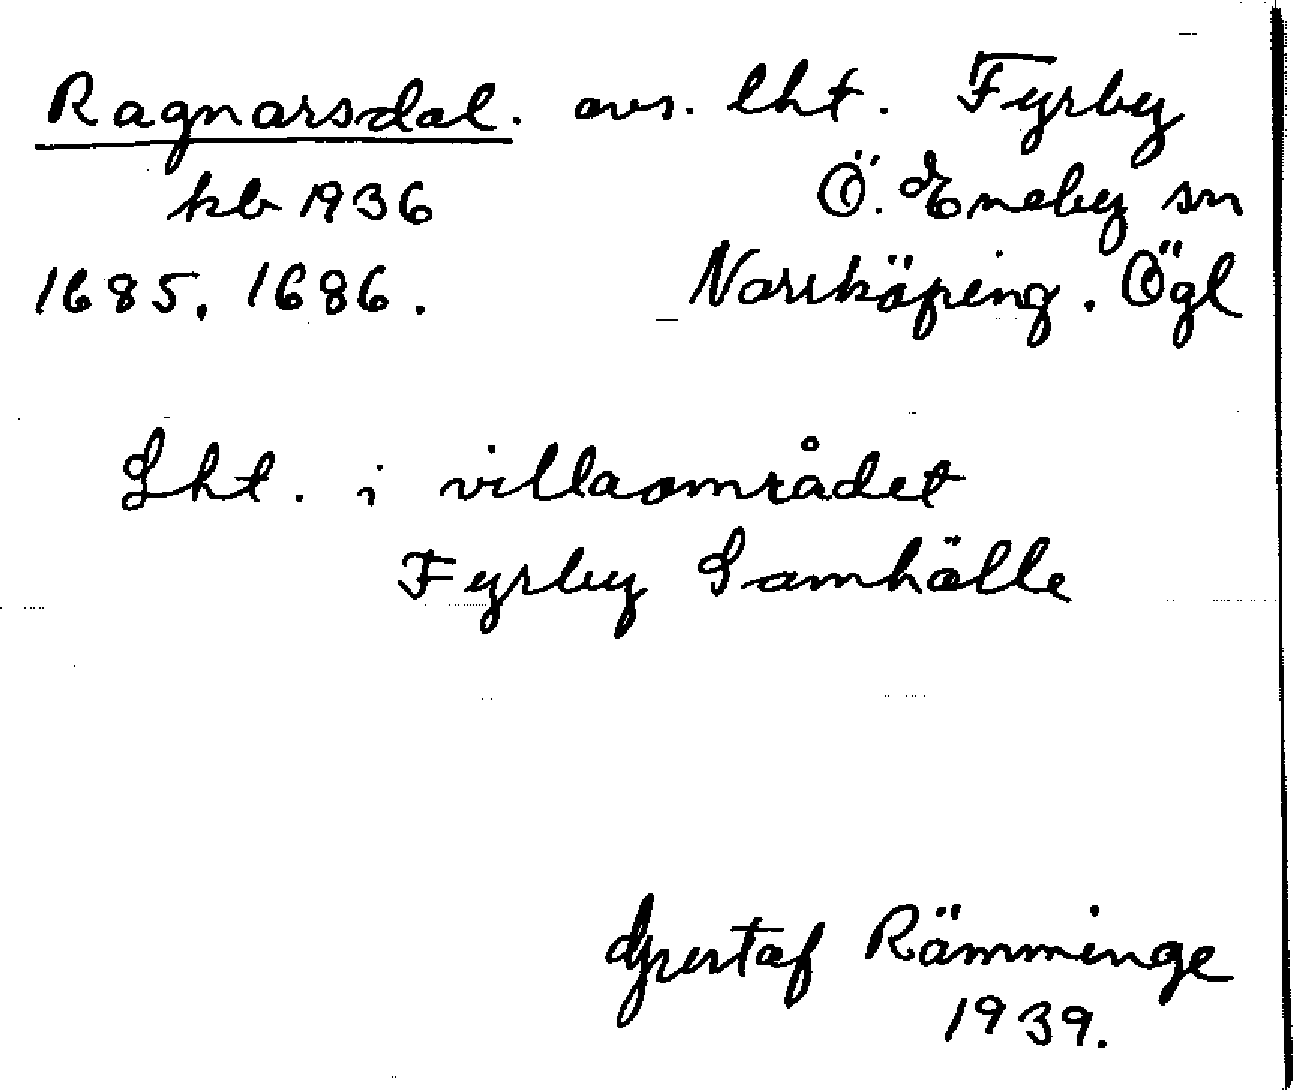 Ragnarsdal. avs. lht. Fyrby
kb 1936 Ö. Eneby sn
1685, 1686. Norrköping. Ögl
Lht. i villaområdet
Fyrby Samhälle
Gustaf Rämminge
1939.